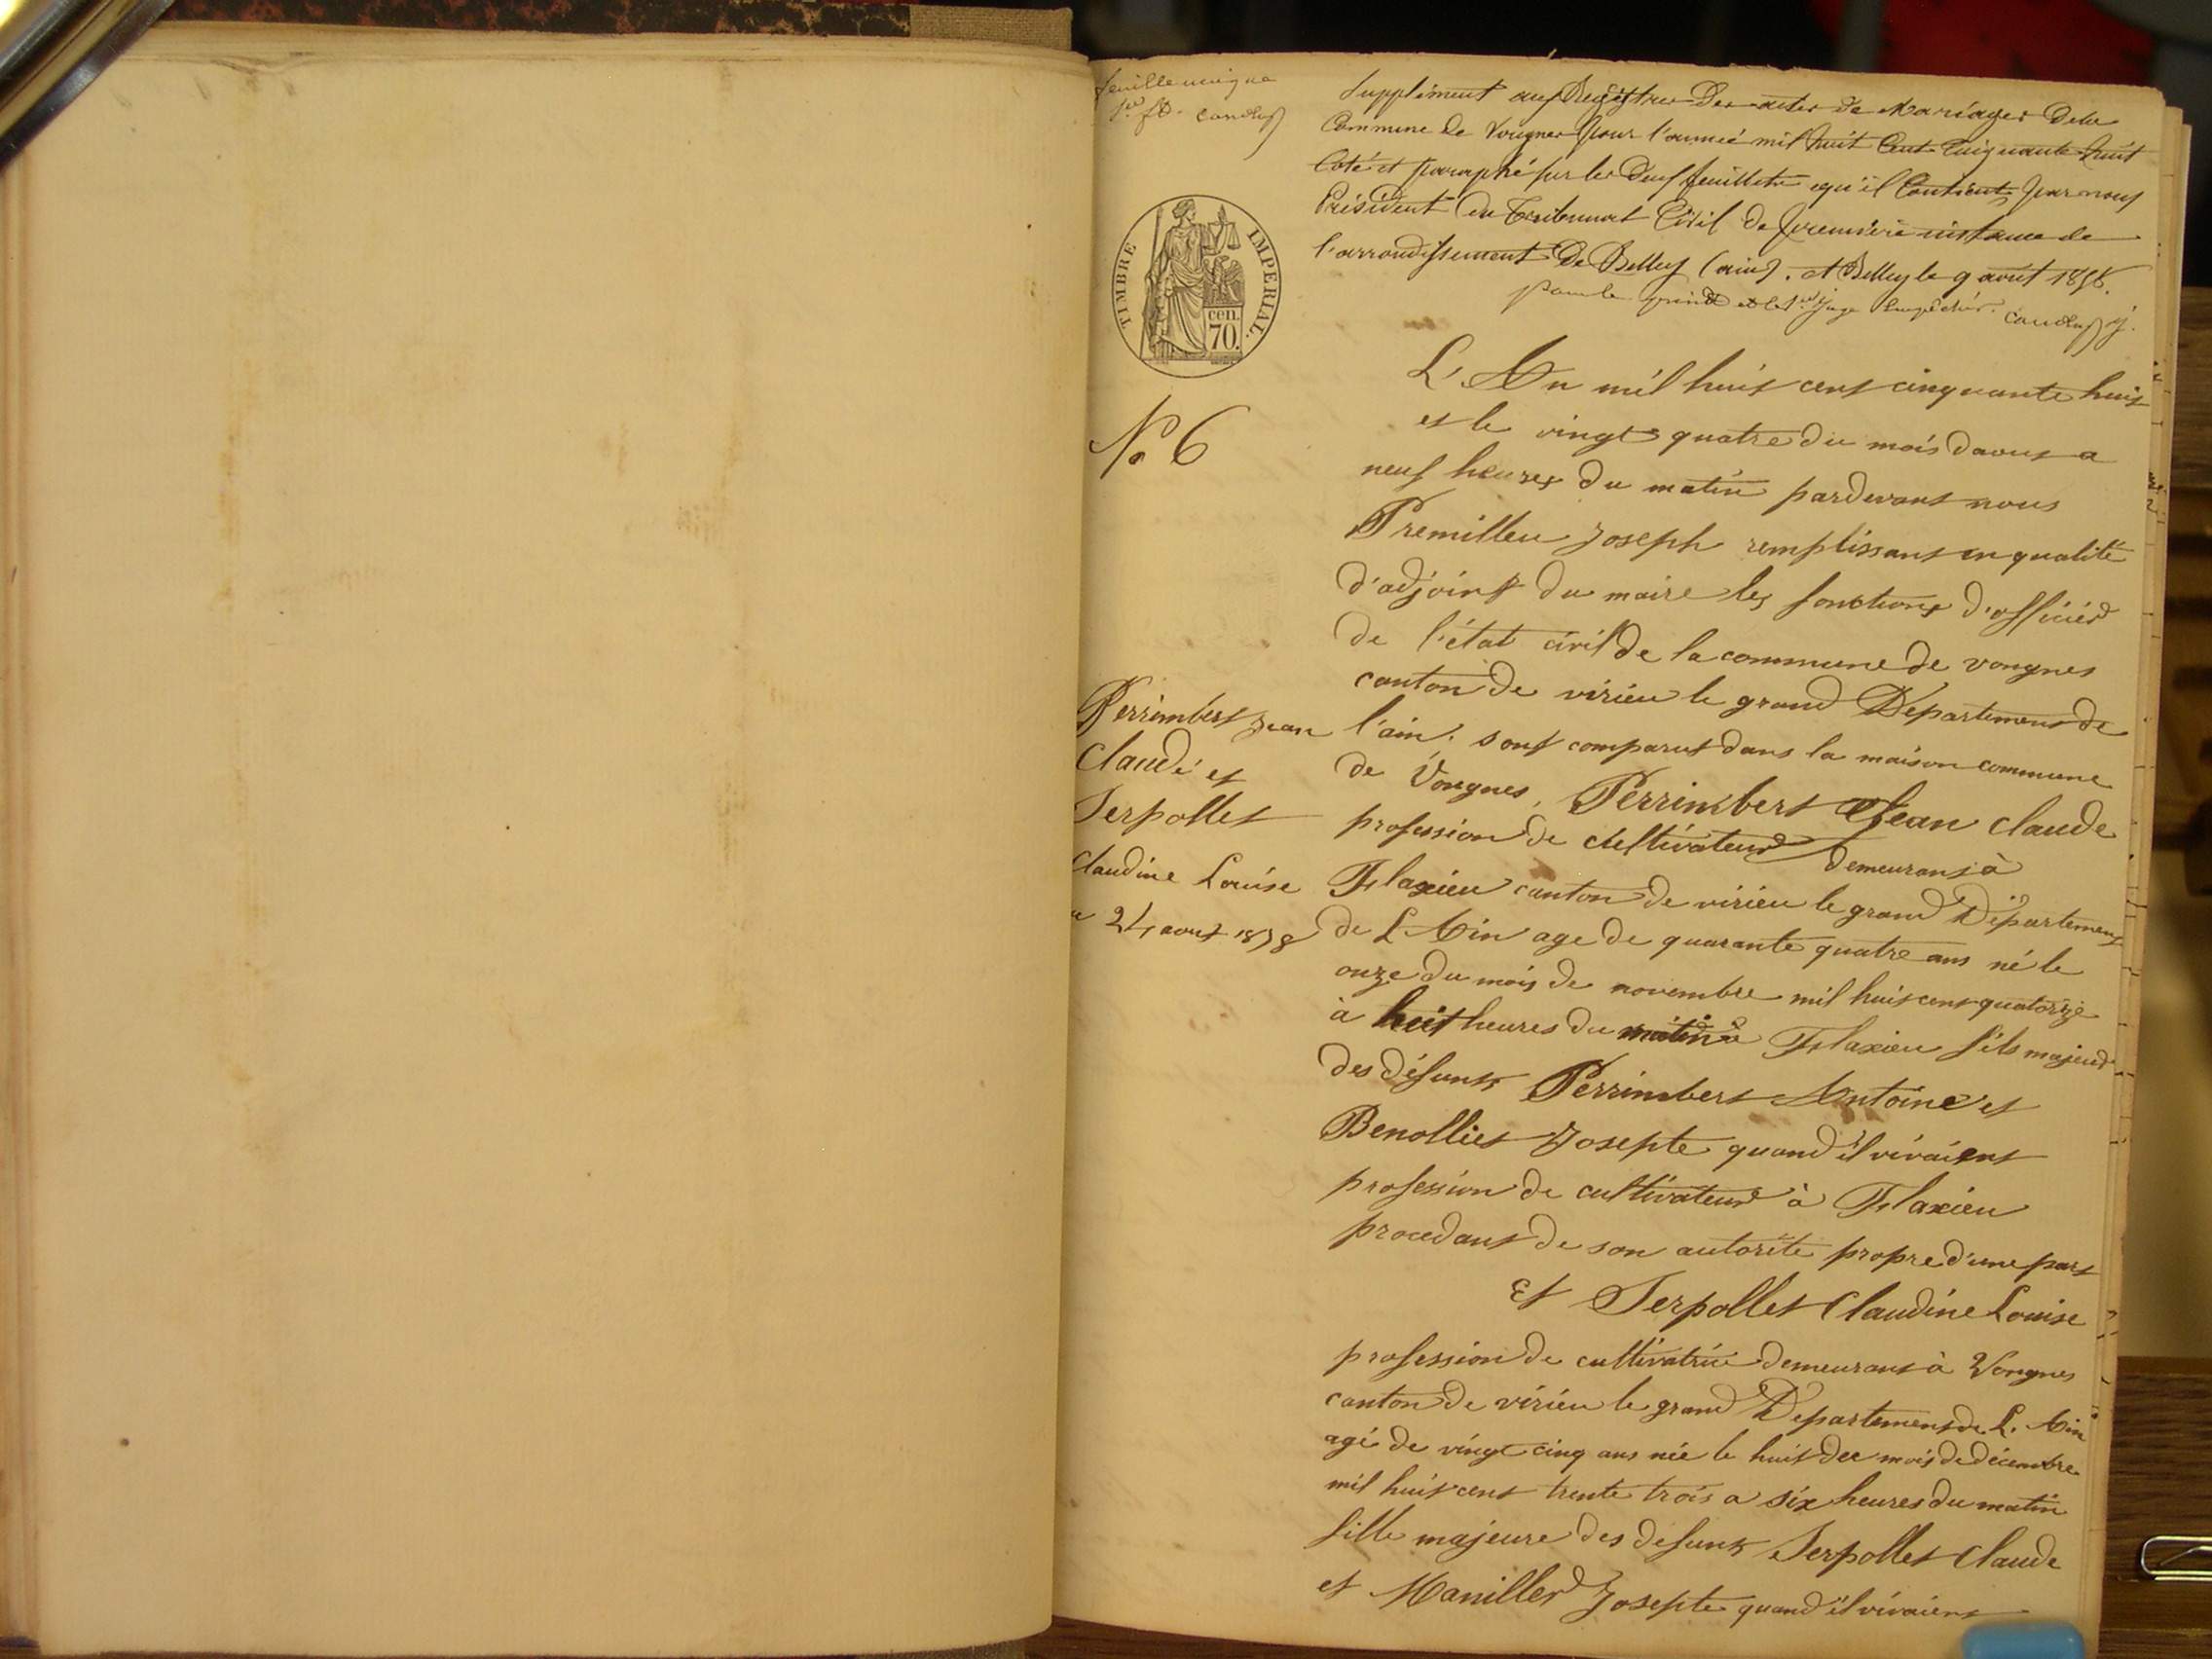 feuille unique
1er ft. 
Supplément aux Registres des actes de Mariages de la
Commune de Vongnes pour l'année mil huit Cent Cinquante huit
Coté et paraphé sur les deux feuillets qu'il Contient par nous
Président du Tribunal Civil de première instance de
l'arrondissement de Belley (ain). at Belley le 9 août 1858.
pour le présidt et le 1er juge empêchés. j.
TIMBRE IMPERIAL.
cen.
70.
No 6
L'An mil huit cent cinquante huit
et le vingt quatre du mois d'aout a
neuf heures du matin pardevant nous
Premilleu Joseph remplissant en qualité
d'adjoint du maire les fonctions d'officier
de l'état civil de la commune de vongnes
canton de virieu le grand Departement de
l'ain. sont comparut dans la maison commune
de Vongnes, Perrimbert Jean claude
profession de cultivateur demeurant à
Flaxieu canton de virieu le grand Département
de L'Ain age de quarante quatre ans né le
onze du mois de novembre mil huit cent quatorze
à huit heures du matin à Flaxieu fils majeur
des défunts Perrimbert Antoine et
Benollier Josepte quand il vivaient
profession de cultivateur à Flaxieu
procedant de son autorité propre d'une part
Et Serpollet Claudine Louise
profession de cultivatrice demeurant à Vongnes
canton de virieu le grand Departement de L'Ain
agé de vingt cinq ans née le huit du mois de décembre
mil huit cent trente trois a six heures du matin
fille majeure des defunts Serpollet Claude
et Maniller Josepte quand il vivaient
Perrimbert Jean
Claude et
Serpollet
Claudine Louise
24 aout 1858